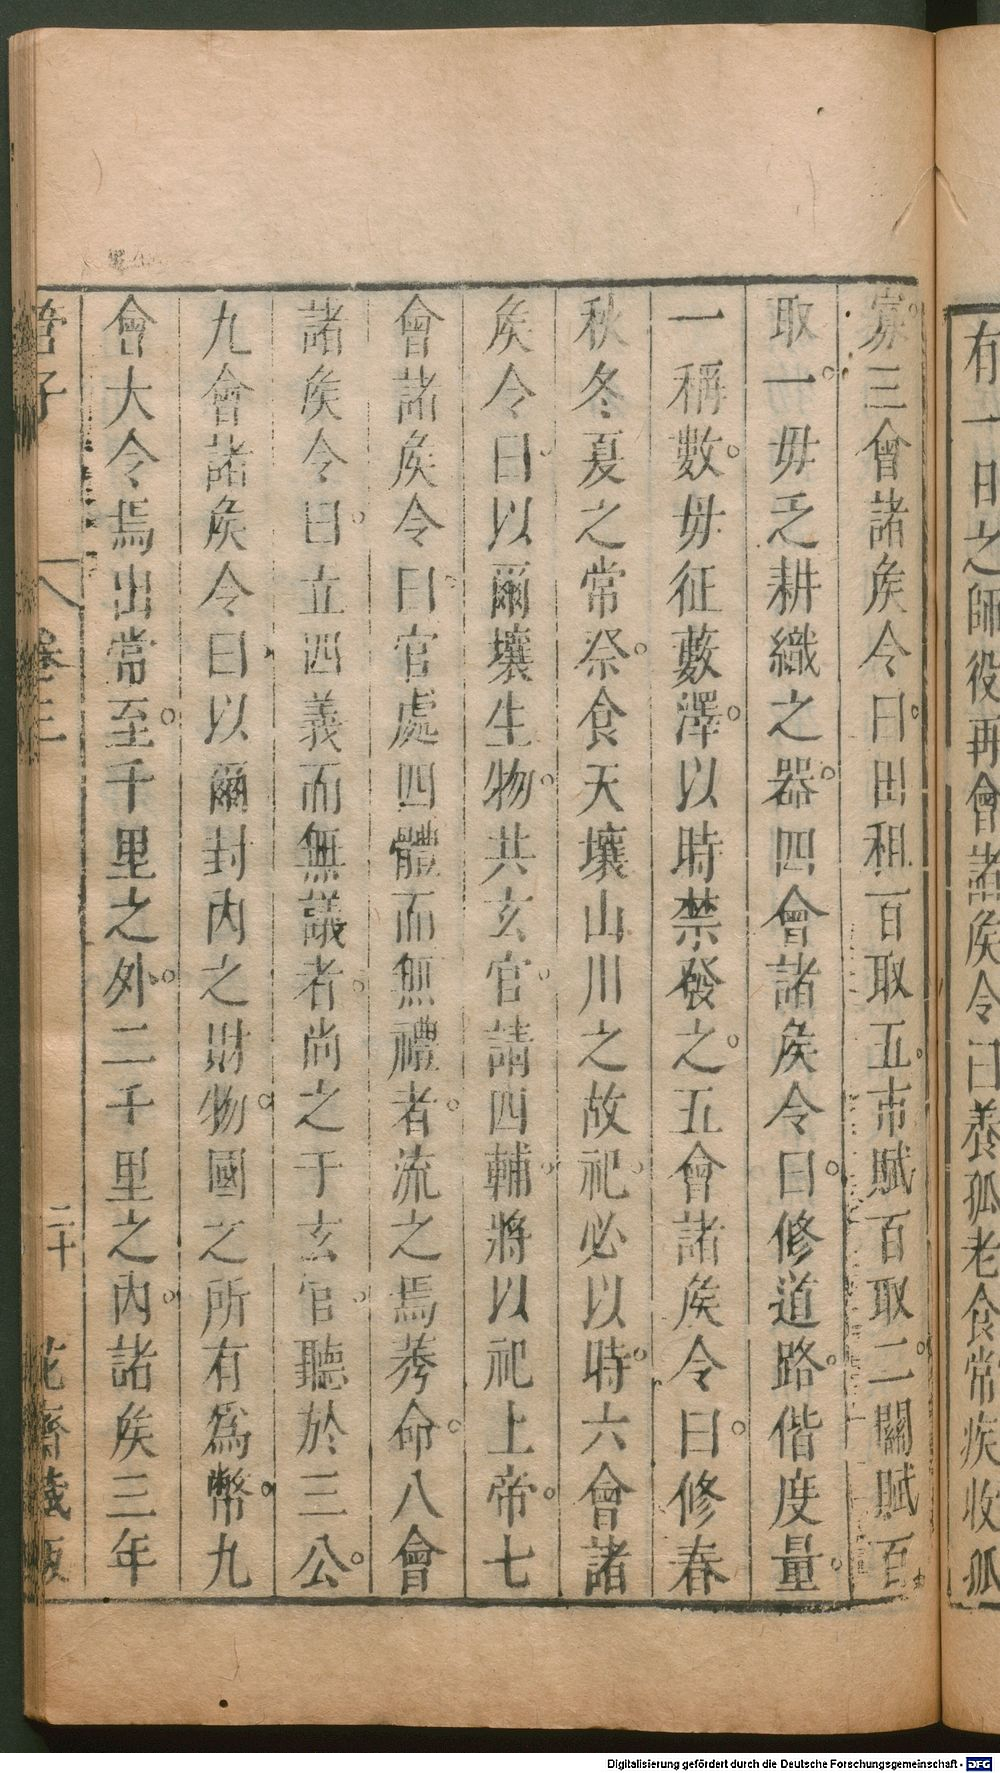 有一日之師役再會諸侯令曰養孤老食常疾收孤
寡三會諸侯令曰田租百取五市賦百取二關賦百
取一毋乏耕織之器四會諸侯令曰修道路偕度量
一稱數毋征藪澤以時禁發之五會諸侯令曰修春
秋冬夏之常祭食天壤山川之故祀必以時六會諸
侯令曰以爾壤生物共玄官請四輔將以祀上帝七
會諸侯令曰官處四體而無禮者流之焉莠命八會
諸侯令曰立四義而無議者尚之于玄官聽於三公
九會諸侯令曰以爾封內之財物國之所有為幣九
會大令焉出常至千里之外二千里之內諸侯三年
管子 卷三 二十 花齋藏板
Digitalisierung gefördert durch die Deutsche Forschungsgemeinschaft - DFG